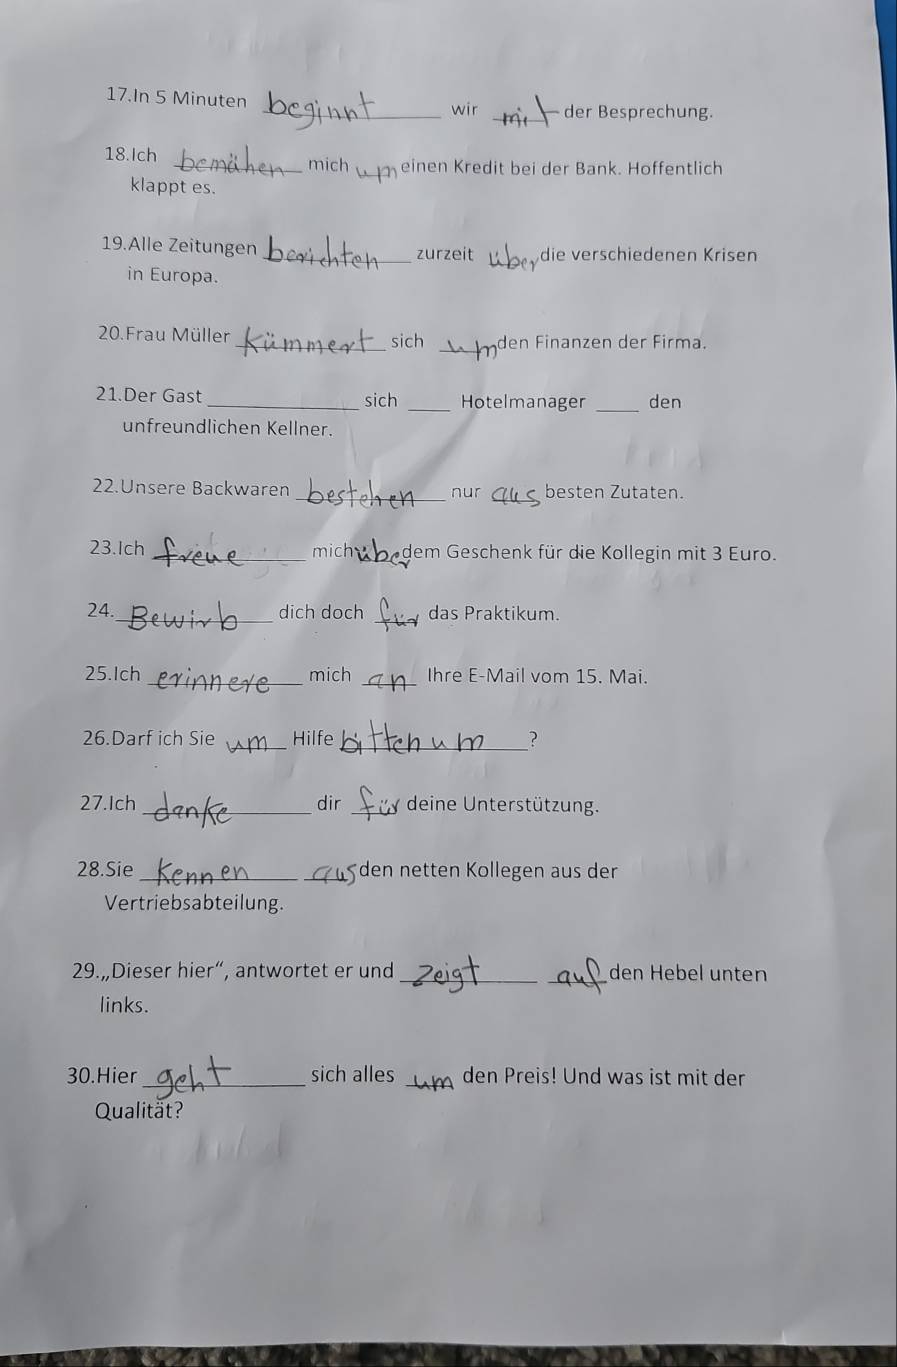 17.In 5 Minuten beginnt wir mit der Besprechung.
18.Ich bemühen mich um einen Kredit bei der Bank. Hoffentlich
klappt es.
19.Alle Zeitungen berichten zurzeit über die verschiedenen Krisen
in Europa.
20.Frau Müller kümmert sich um den Finanzen der Firma.
21.Der Gast ______ sich ____ Hotelmanager ____ den
unfreundlichen Kellner.
22.Unsere Backwaren bestehen nur aus besten Zutaten.
23.Ich freue mich über dem Geschenk für die Kollegin mit 3 Euro.
24. Bewirb dich doch für das Praktikum.
25.Ich erinnere mich an Ihre E-Mail vom 15. Mai.
26.Darf ich Sie um Hilfe bitten um ?
27.Ich danke dir für deine Unterstützung.
28.Sie kennen aus den netten Kollegen aus der
Vertriebsabteilung.
29.„Dieser hier“, antwortet er und zeigt auf den Hebel unten
links.
30.Hier geht sich alles um den Preis! Und was ist mit der
Qualität?